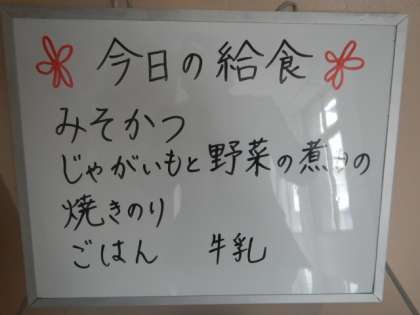 今日の給食
みそかつ
じゃがいもと野菜の煮もの
焼きのり
ごはん 牛乳